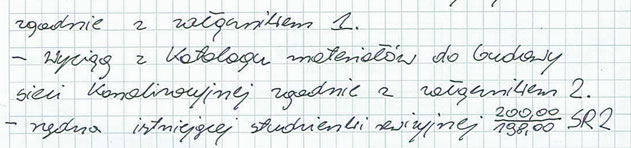 zgodnie z załącznikiem 1.
- wyciąg z Katalogu materiałów do budowy
sieci kanalizacyjnej zgodnie z załącznikiem 2.
- rzędna istniejącej studzienki rewizyjnej 200,00/198,00 SR2